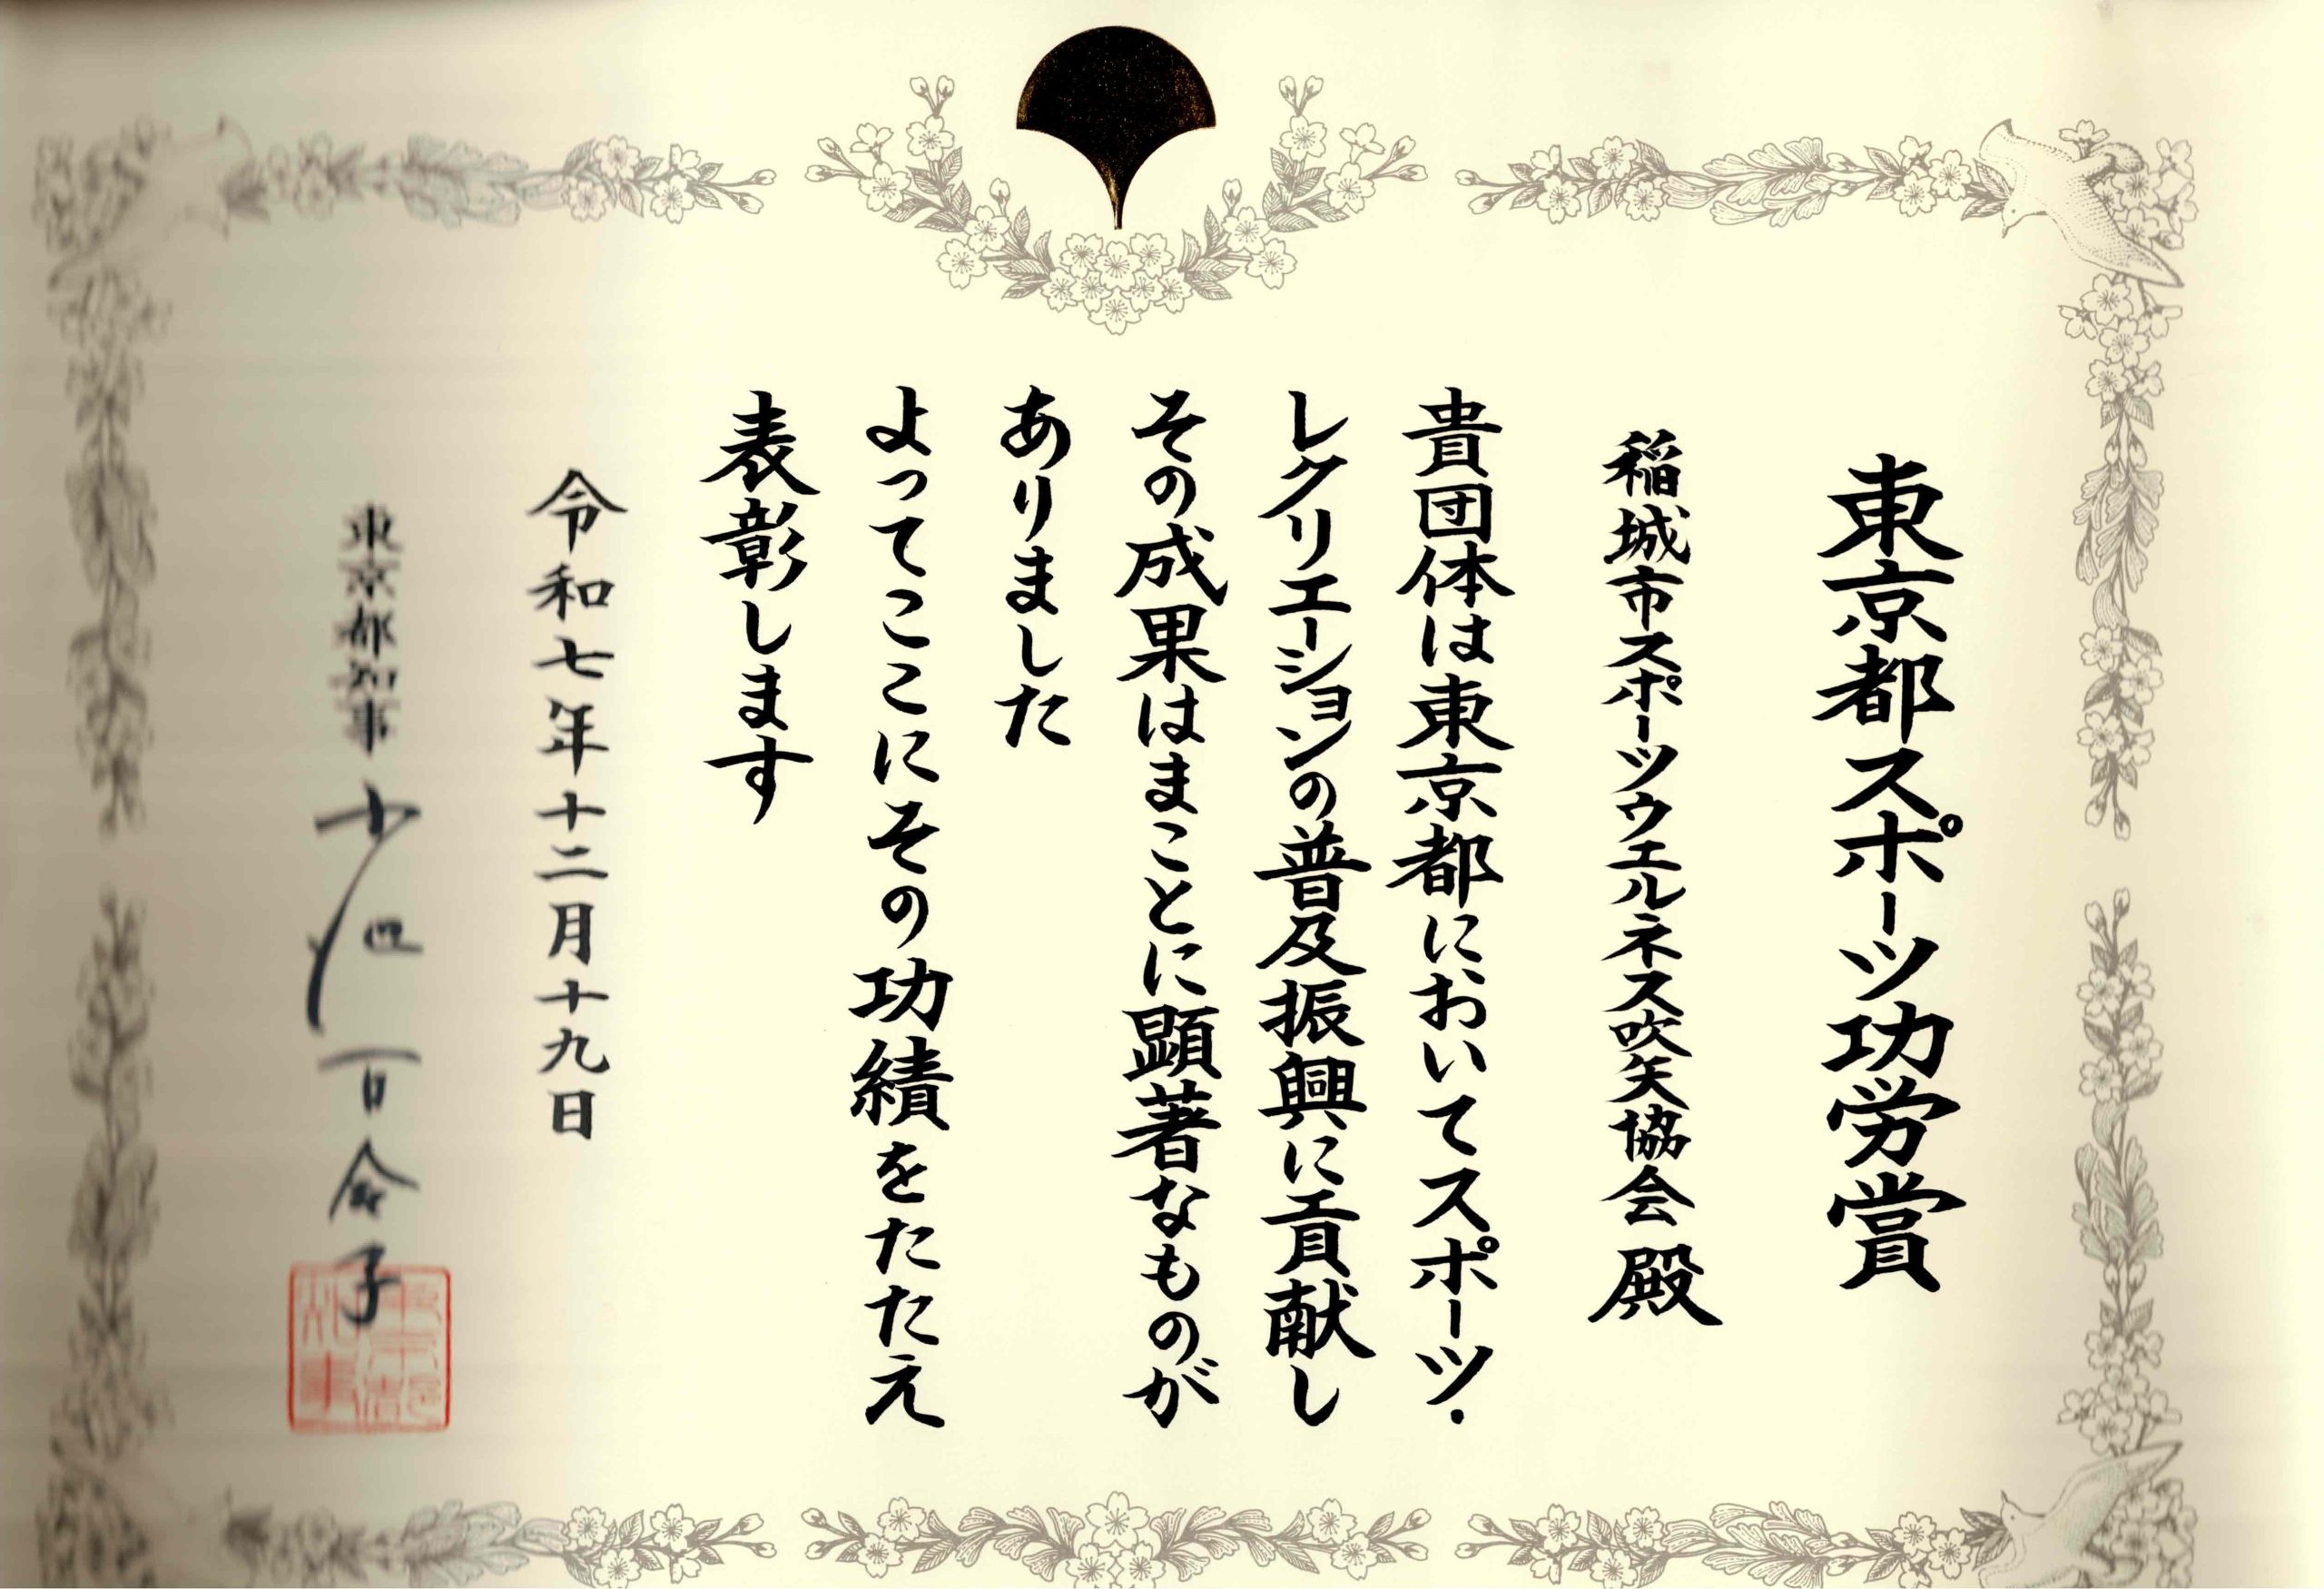 東京都スポーツ功労賞
稲城市スポーツウエルネス吹矢協会 殿
貴団体は東京都においてスポーツ・
レクリエーションの普及振興に貢献し
その成果はまことに顕著なものが
ありました
よってここにその功績をたたえ
表彰します
令和七年十二月十九日
東京都知事 小池百合子
東京都知事